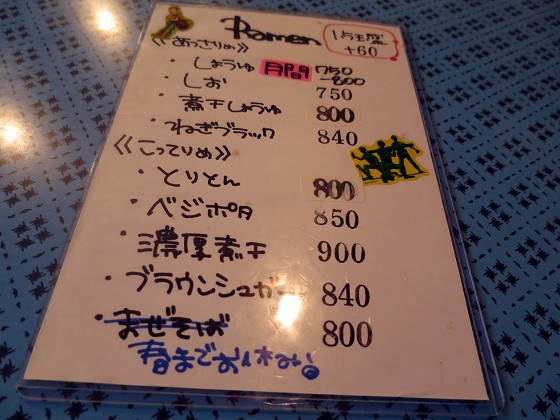 Ramen
1.5玉盛
+60
《あっさりめ》
・しょうゆ 月間 750
~800
・しお 750
・煮干しょうゆ 800
・ねぎブラック 840
《こってりめ》
・とりとん 800
・ベジポタ 850
・濃厚煮干 900
・ブラウンシュガー 840
・まぜそば 800
春までお休みな。